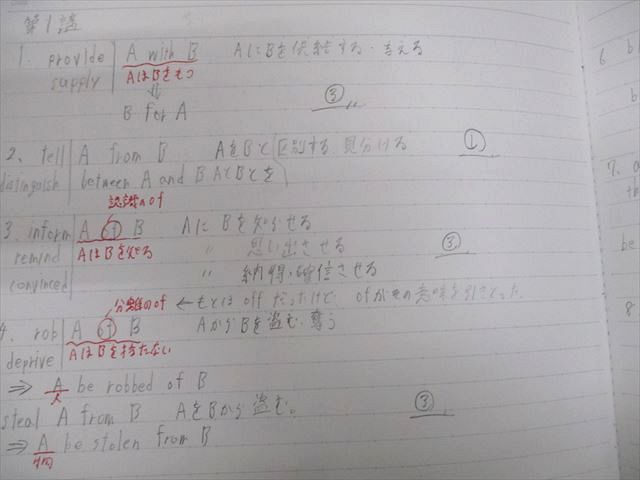 第1講
1. provide A with B AにBを供給する・与える
supply AはBをもつ
⇓ ③
B for A
2. tell A from B AをBと区別する, 見分ける ①
distinguish between A and B AとBとを
認識のof
3. inform A of B AにBを知らせる
remind AはBを知る 〃 思い出させる ③
convinced 〃 納得・確信させる
分離のof ← もとはoffだったけど, ofがその意味を引きとった.
4. rob A of B AからBを盗む・奪う
deprive AはBを持たない
⇒ A be robbed of B
人
steal A from B AをBから盗む。 ③
⇒ A be stolen from B
物
6 b
b
7. a
th
be
8.